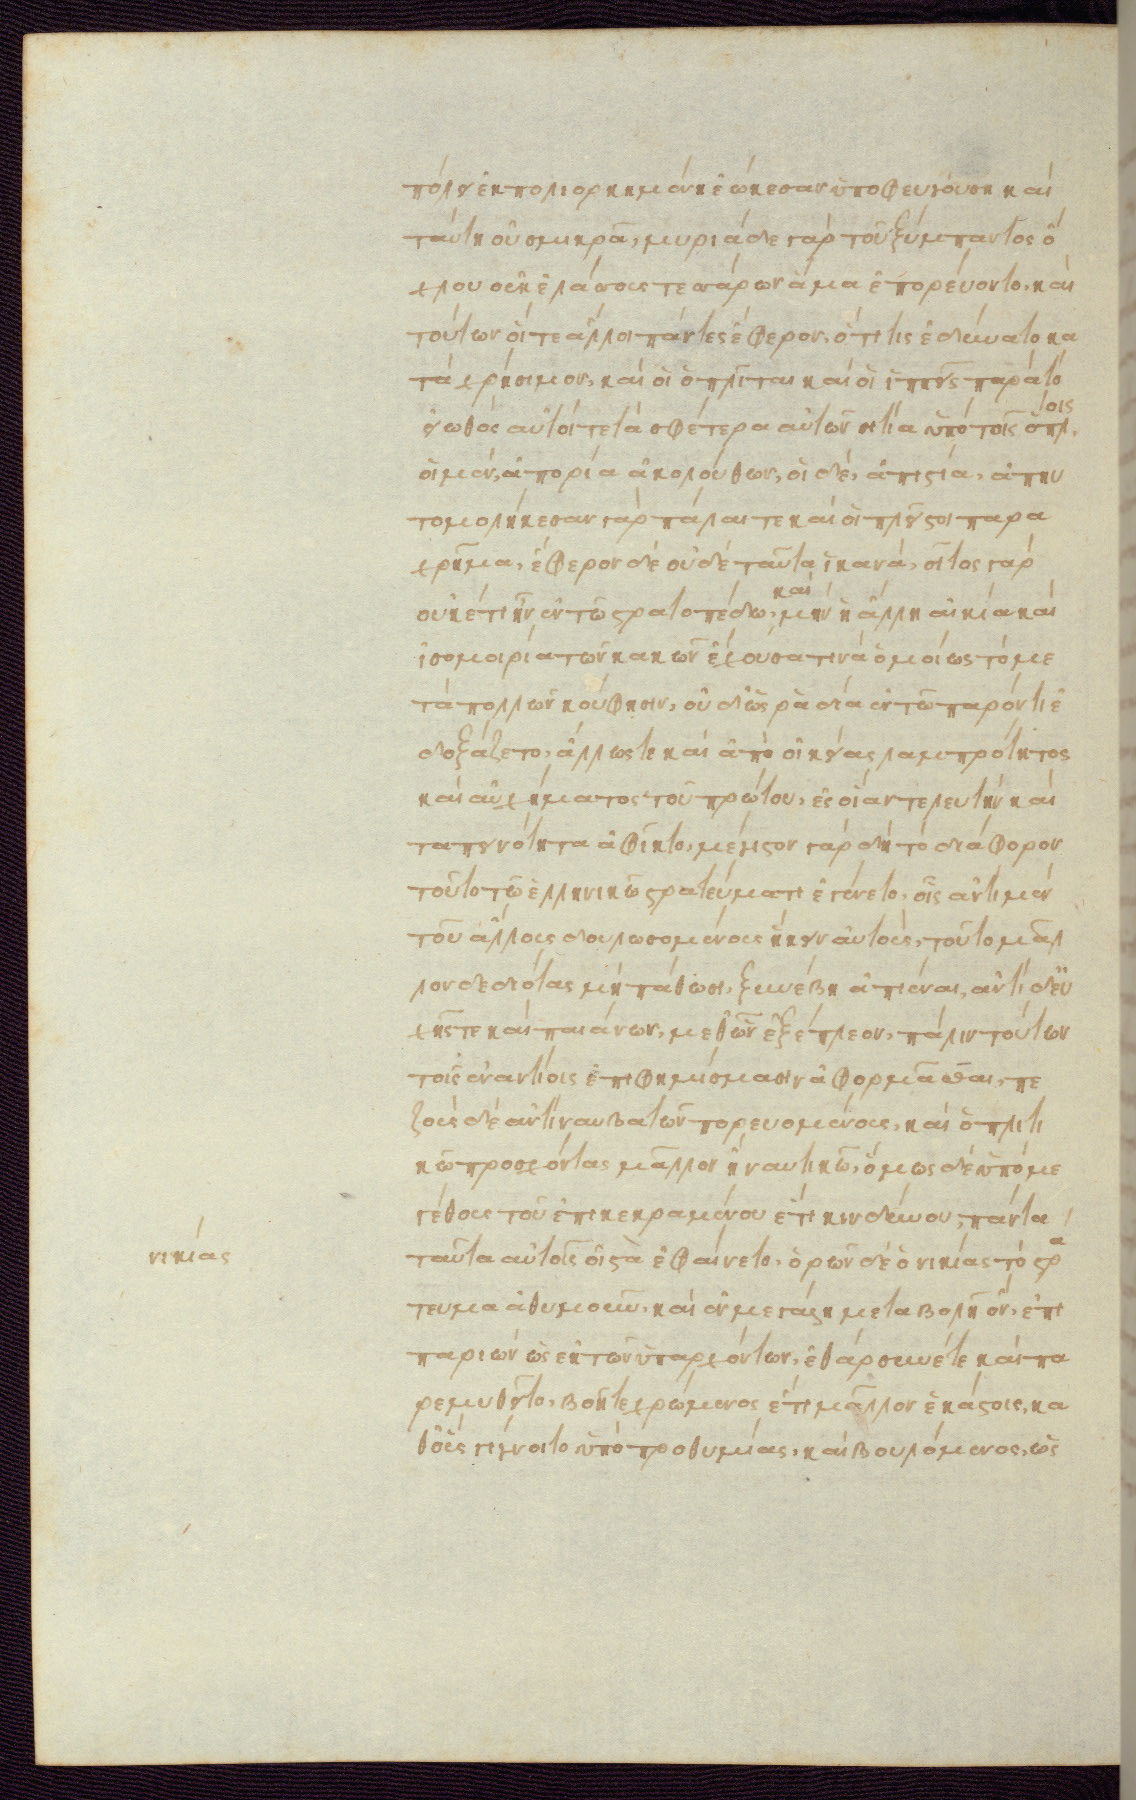 πόλει ἐκπολιορκημένη ἐώκεσαν ὑποφευγούση καὶ
ταύτη οὐ σμικρᾶ, μυριάδε γὰρ τοῦ ξύμπαντος ὄ
χλου οὐκ ἐλάσσους τεσσάρων ἅμα ἐπορεύοντο, καὶ
τούτων οἵ τε ἄλλοι πάντες ἔφερον, ὅτι τις ἐδύνατο κα
τὰ χρήσιμον, καὶ οἱ ὁπλῖται καὶ οἱ ἱππεῖς παρὰ τὸ
εἰωθὸς αὐτοί τε τὰ σφέτερα αὐτῶν σιτία ὑπὸ τοῖς ὅπλοις,
οἱ μὲν, ἀπορία ἀκολούθων, οἱ δὲ, ἀπιστία, ἀπηυ
τομολήκεσαν γὰρ πάλαι τε καὶ οἱ πλεῖστοι παρα
χρῆμα, ἔφερον δὲ οὐδὲ ταῦτα ἱκανά, σῖτος γὰρ
οὐκέτι ἦν ἐν τῶ στρατοπέδω, καὶ μὴν ἡ ἄλλη αἰκία καὶ
ἰσομοιρία τῶν κακῶν ἔχουσά τινα ὁμοίως τὸ με
τὰ πολλῶν κούφισιν, οὐδ' ὣς ῥαδία ἐν τῶ παρόντι ἐ
δοξάζετο, ἄλλως τε καὶ ἀπὸ οἰκείας λαμπρότητος
καὶ αὐχήματος τοῦ πρώτου, ἐς οἵαν τελευτὴν καὶ
ταπεινότητα ἀφίκτο, μέγιστον γὰρ δὴ τὸ διάφορον
τοῦτο τῶ ἑλληνικῶ στρατεύματι ἐγένετο, οἷς ἀντὶ μὲν
τοῦ ἄλλους δουλωσομένους ἥκειν αὐτοὺς, τοῦτο μᾶλ
λον δεδιότας μὴ πάθωσι, ξυνέβη ἀπιέναι, ἀντὶ δ' εὐ
χῆς τε καὶ παιάνων, μεθ' ὧν ἐξέπλεον, πάλιν τούτων
τοῖς ἐναντίοις ἐπιφημίσμασιν ἀφορμᾶσθαι, πε
ζούς δὲ ἀντὶ ναυβατῶν πορευομένους, καὶ ὁπλιτι
κῶ προσχόντας μᾶλλον ἢ ναυτικῶ, ὅμως δὲ ὑπὸ με
γέθους τοῦ ἐπικεκραμένου ἔτι κινδύνου, πάντα
νικίας
ταῦτα αὐτοῖς οἰστὰ ἐφαίνετο, ὁρῶν δὲ ὁ νικίας τὸ στρά
τευμα ἀθυμοῦν, καὶ ἐν μεγάλη μεταβολῆ ὄν, ἐπι
παριὼν ὡς ἐκ τῶν ὑπαρχόντων, ἐθάρσυνέ τε καὶ πα
ρεμυθεῖτο, βοῆ τε χρώμενος ἔτι μᾶλλον ἑκάστοις, κα
θ' οὓς γίγνοιτο ὑπὸ προθυμίας, καὶ βουλόμενος, ὡς